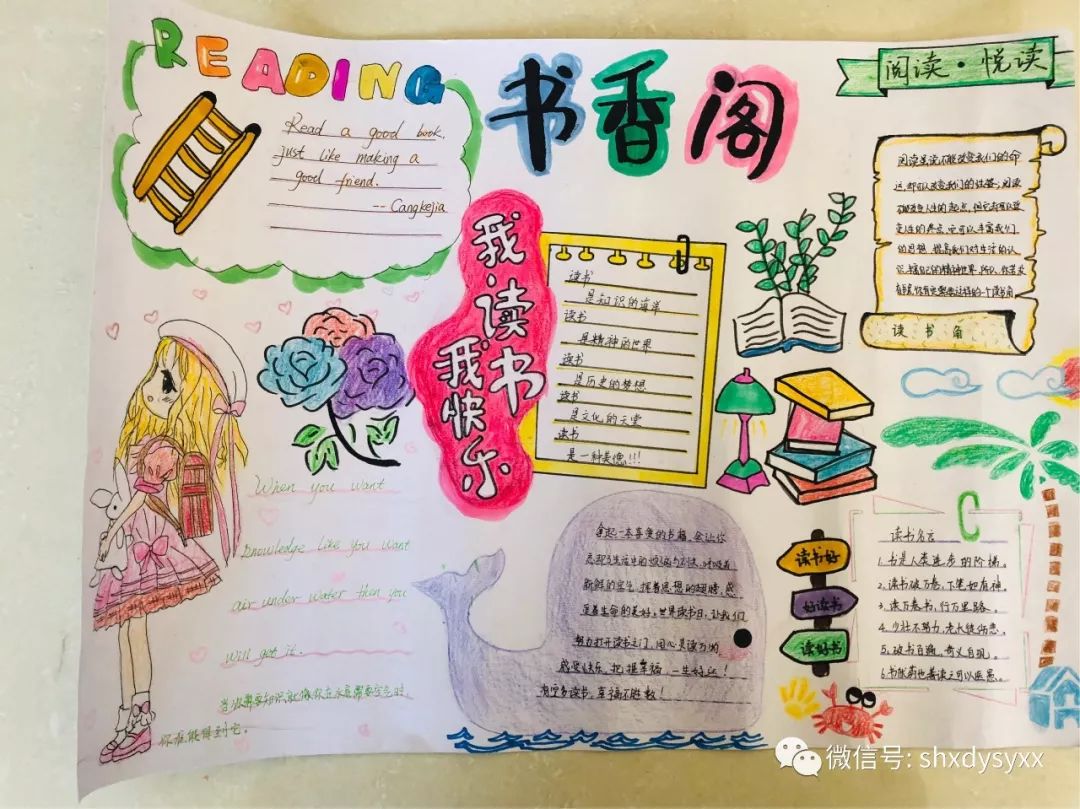 READING
书香阁
阅读·悦读
Read a good book,
just like making a
good friend.
-- Cangkejia
我·读书
我快乐
读书
是知识的海洋
读书
是精神的世界
读书
是历史的梦想
读书
是文化的天堂
读书
是一种美德!!!
阅读虽说不能改变我们的命
运,却可以改变我们的性格;阅读
不能改变人生的起点,但它却可以改
变人生的终点,它可以丰富我们
的思想,提高我们对生活的认
读书角
When you want
knowledge like you want
air under water then you
will get it.
当你需要知识就像你在水底需要空气时,
你准能得到它。
拿起一本喜爱的书籍,会让你
忘却了生活中的烦恼与不快,呼吸着
新鲜的空气,挥着思想的翅膀,感
受着生命的美好,世界读书日,让我们
努力打开读书之门,用心灵读万物,
感受快乐,把握幸福,一生好运!
读书好
好读书
读好书
读书名言
1.书是人类进步的阶梯。
2.读书破万卷,下笔如有神。
3.读万卷书,行万里路。
4.少壮不努力,老大徒伤悲。
5.读书百遍,其义自现。
微信号: shxdysyxx